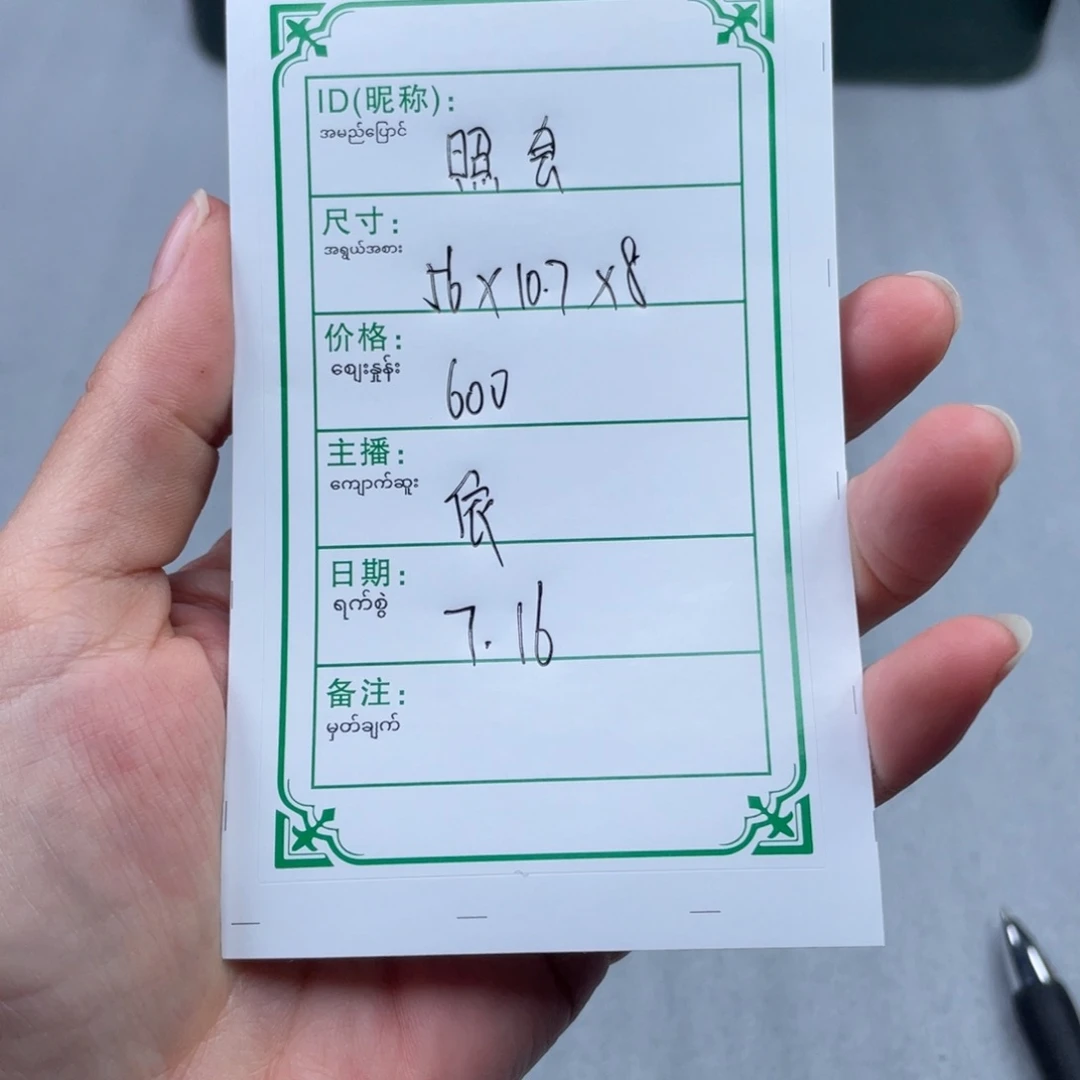 ID(昵称):
အမည်ပြောင်
照会
尺寸:
အရွယ်အစား
56×10.7×8
价格:
ဈေးနှုန်း
600
主播:
ကျောက်ဆူး
依
日期:
ရက်စွဲ
7.16
备注:
မှတ်ချက်